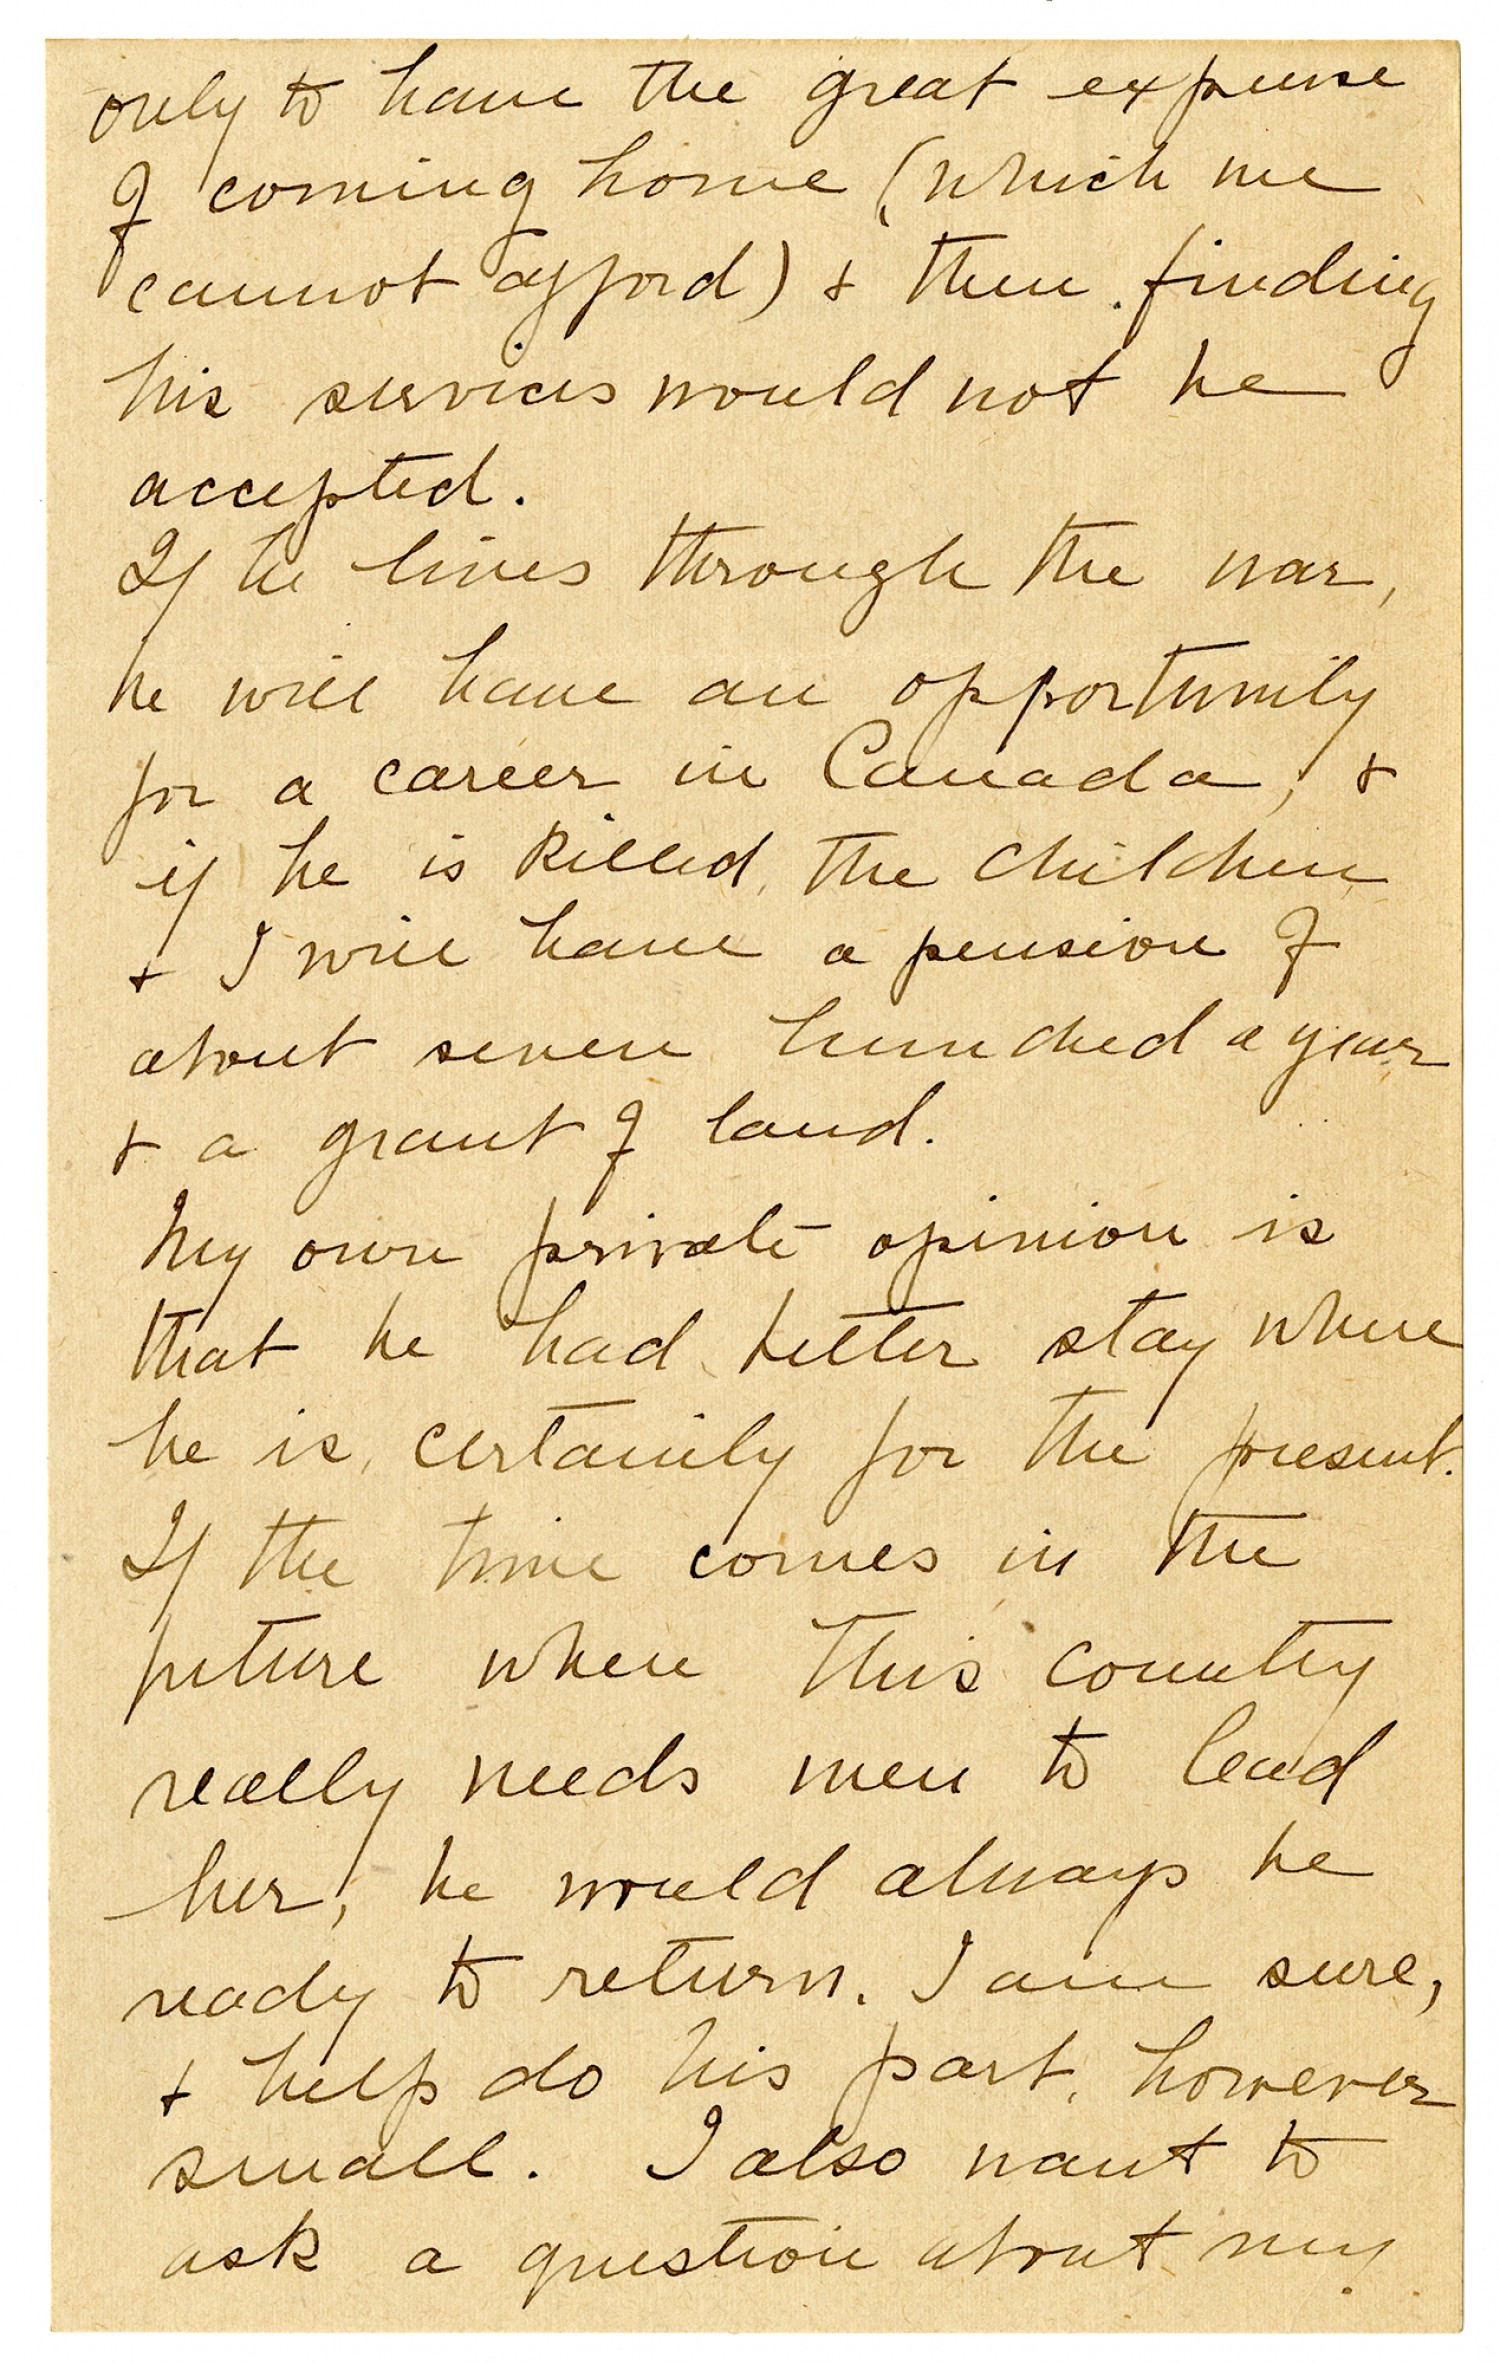 only to have the great expense
of coming home (which we
cannot afford) & then finding
his services would not be
accepted.
If he lives through the war,
he will have an opportunity
for a career in Canada, &
if he is killed, the children
& I will have a pension of
about seven hundred a year
& a grant of land.
My own private opinion is
that he had better stay where
he is, certainly for the present.
If the time comes in the
future when this country
really needs men to lead
her, he would always be
ready to return. I am sure,
& help do his part, however
small. I also want to
ask a question about my